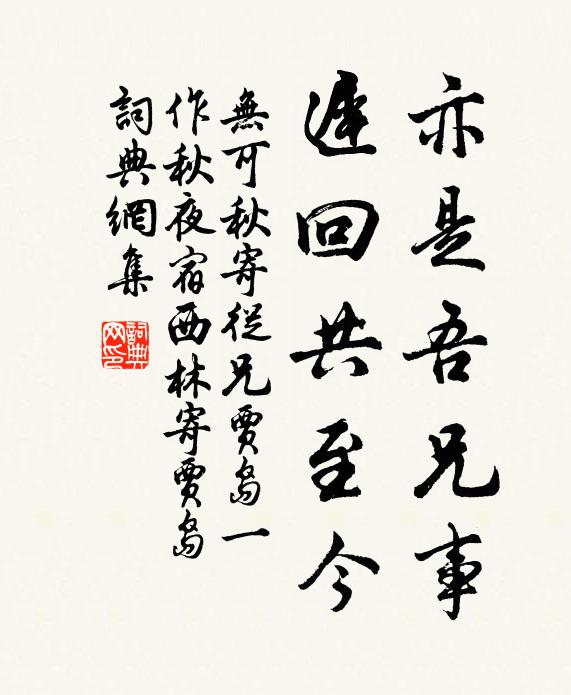 亦是吾兄事
遲回共至今
無可秋寄從兄賈島一
作秋夜宿西林寄賈島
詞典網集
詞典网印